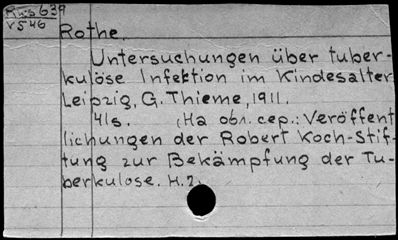 Rus 639
V546
Rothe.
Untersuchungen über tuber-
kulöse Infektion im Kindesalter
Leipzig, G. Thieme, 1911.
41s. (На обл. сер.: Veröffent
lichungen der Robert Koch-Stif-
tung zur Bekämpfung der Tu-
berkulose. H.2.